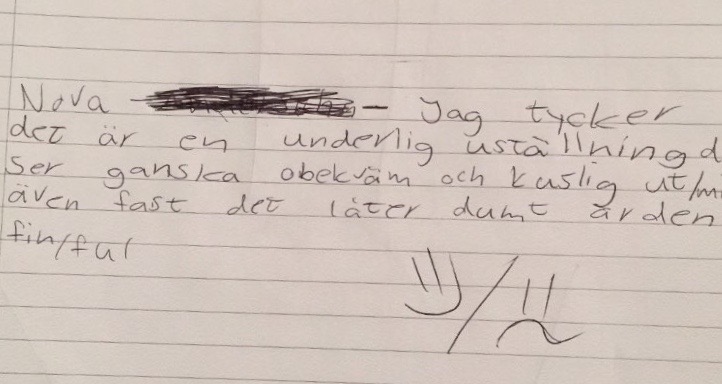 Nova - Jag tycker
det är en underlig uställning d
ser ganska obekväm och kuslig ut/mi
även fast det låter dumt är den
fin/ful